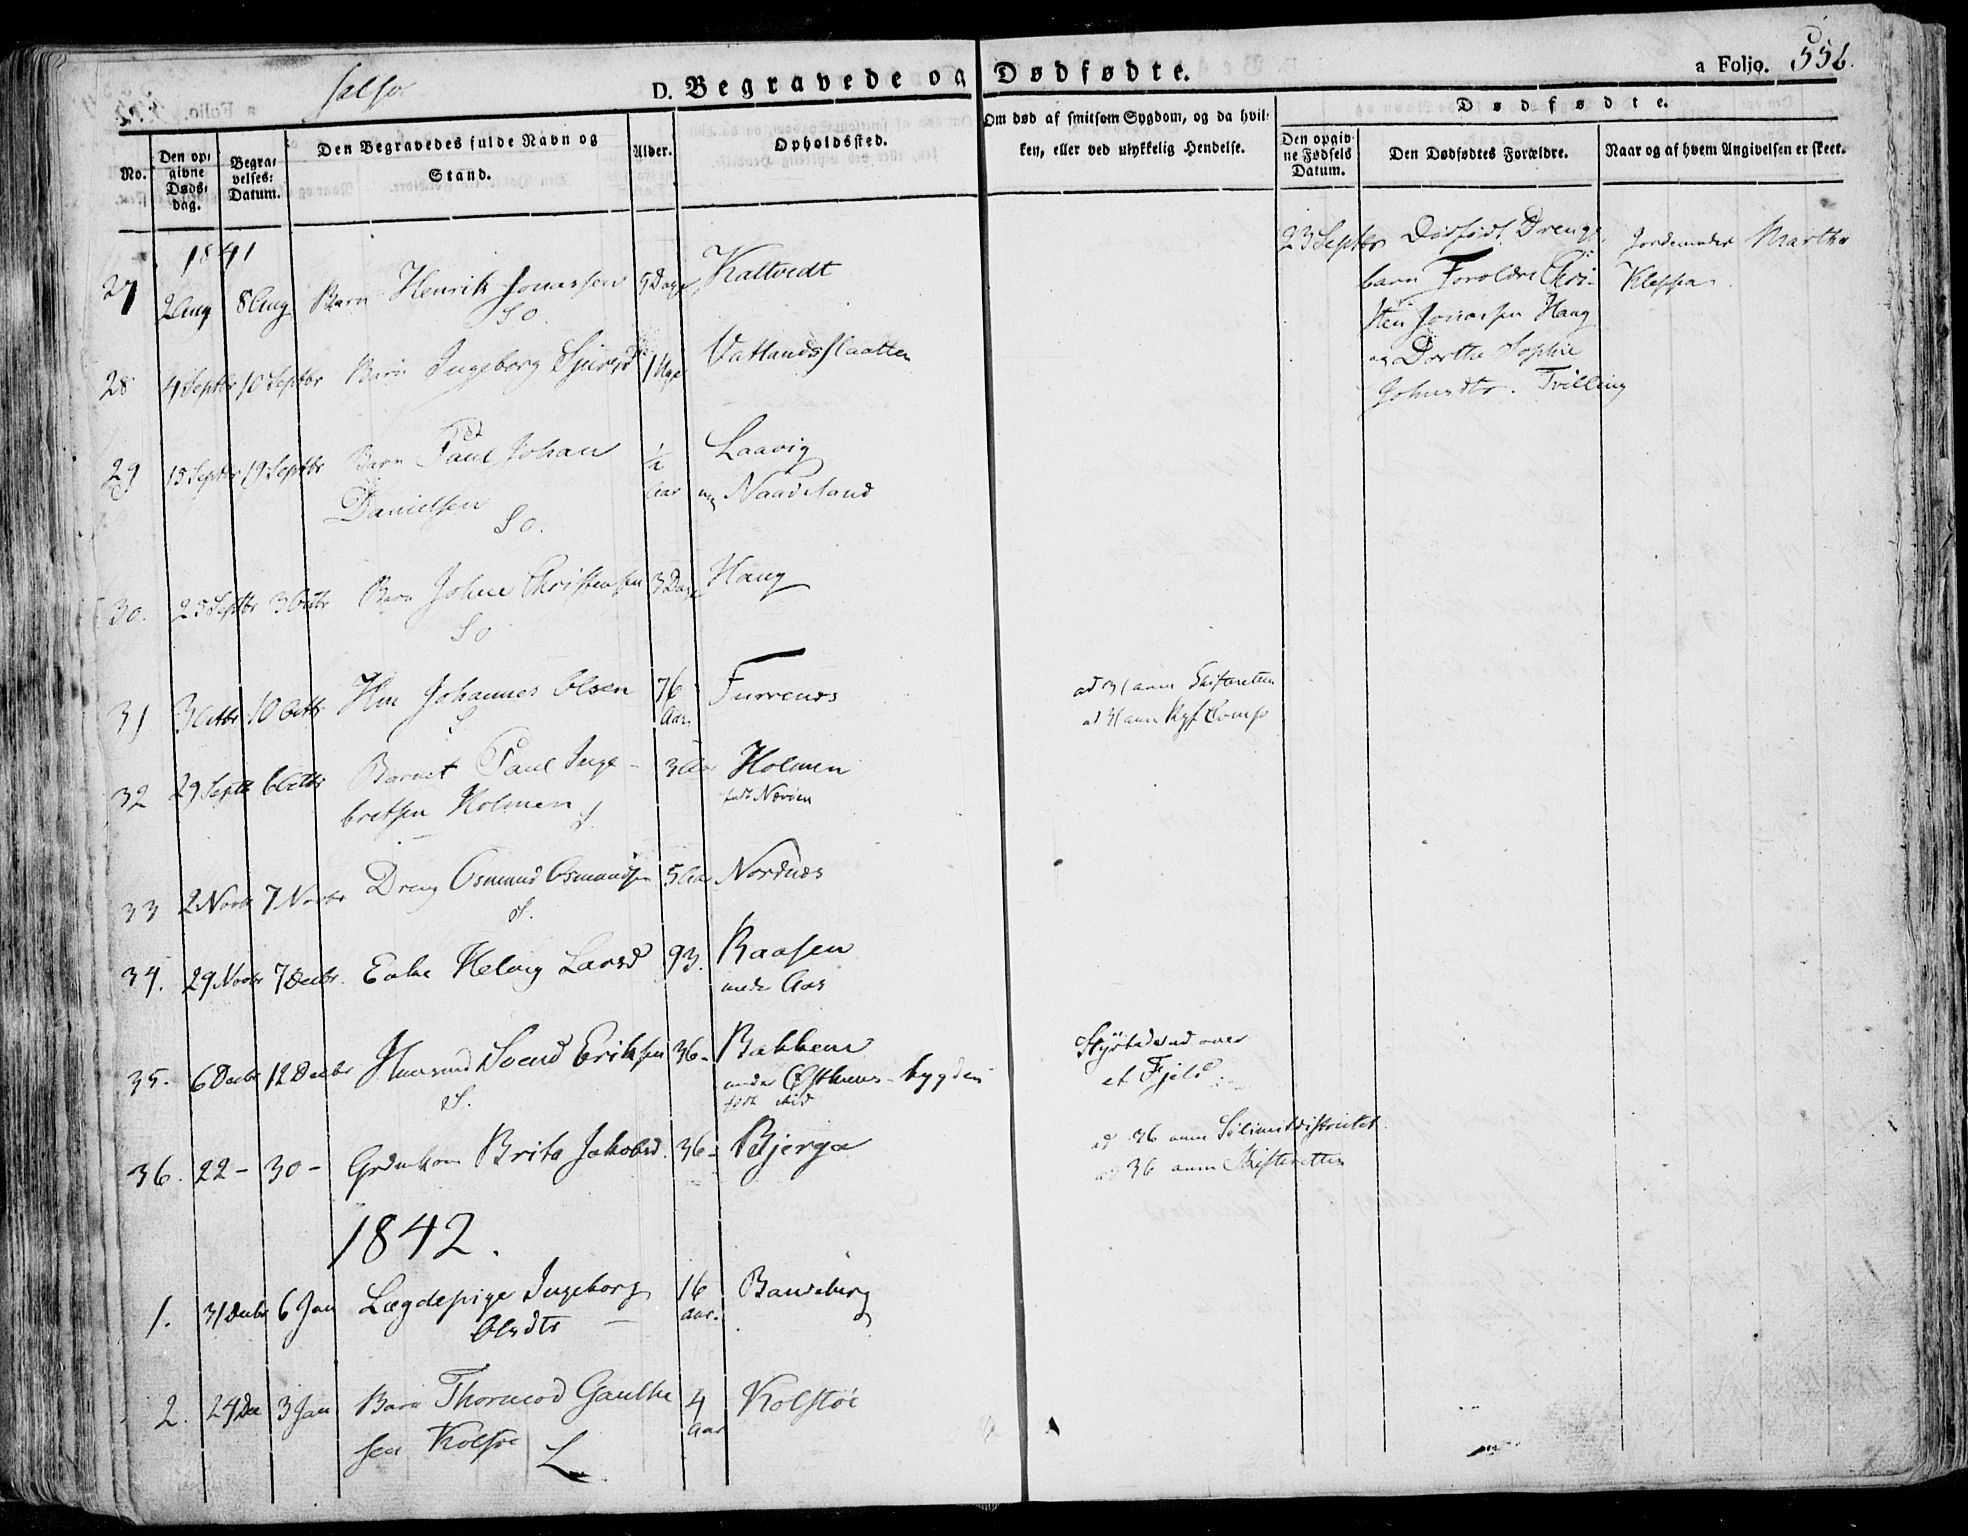 D. Begravede og Dødfødte.
a Foljo. 556.
No.
Den op=
givne
Døds=
dag.
Begra=
velses=
Datum.
Den Begravedes fulde Navn og
Stand.
Alder.
Opholdssted.
Om død af smitsom Sygdom, og da hvil=
ken, eller ved ulykkelig Hendelse.
Dødfødte.
Den opgiv=
ne Fødsels
Datum.
Den Dødfødtes Forældre.
Naar og af hvem Angivelsen er skeet.
1841
27 2 Aug 8 Aug Barn Henrik Jonassen 5 Dage Kaltvedt
28 4 Septbr 10 Septbr Barn Ingeborg 1 Uge Vatlandsflaatten
29 15 Septbr 19 Septbr Barn Paul Johan ½ Laavig
Danielsen Aar og Naadeland
30. 25 Septbr 3 Octbr Barn Johan Christensen 3 Dage Haug
31 3 Octbr 10 Octbr Johannes Olsen 76 Furrenæs
Aar
32 29 Septbr 6 Octbr Barnet Paul Inge- 3 Aar Holmen
bretsen Holmen
33 2 Novbr 7 Novbr Dreng Osmund Osmundsen 5 Aar Nordnæs
34. 29 Novbr 7 Decbr. Enke Helvig Larsd 93. Raasen
under Aas
35. 6 Decbr 12 Decbr Huusmd Svend Eriksen 36- Bakken
under Østhuus-bygden
36. 22- 30- Grdmkone Brita Jakobsd. 36- Bjerga
1842.
1. 31 Decbr 6 Jan Lægdepige Ingeborg 16 Bandeberg
Olsdtr aar.
2. 24 Dec 3 Jan Barn Thormod Gauthe 4 Kolstøe
sen Kolstøe Aar
ad 31 anm Skifteretten
ad 31 anm
Styrtede ud over
et Fjeld
ad 36 anm
ad 36 anm Skifteretten
23 Septbr Dødfødt Drenge
barn Forældre Chri-
sten Jonassen Haug
og Dorthe Sophie
Johnsdtr. Tvilling
Jordemoder Martha
Kleppa.